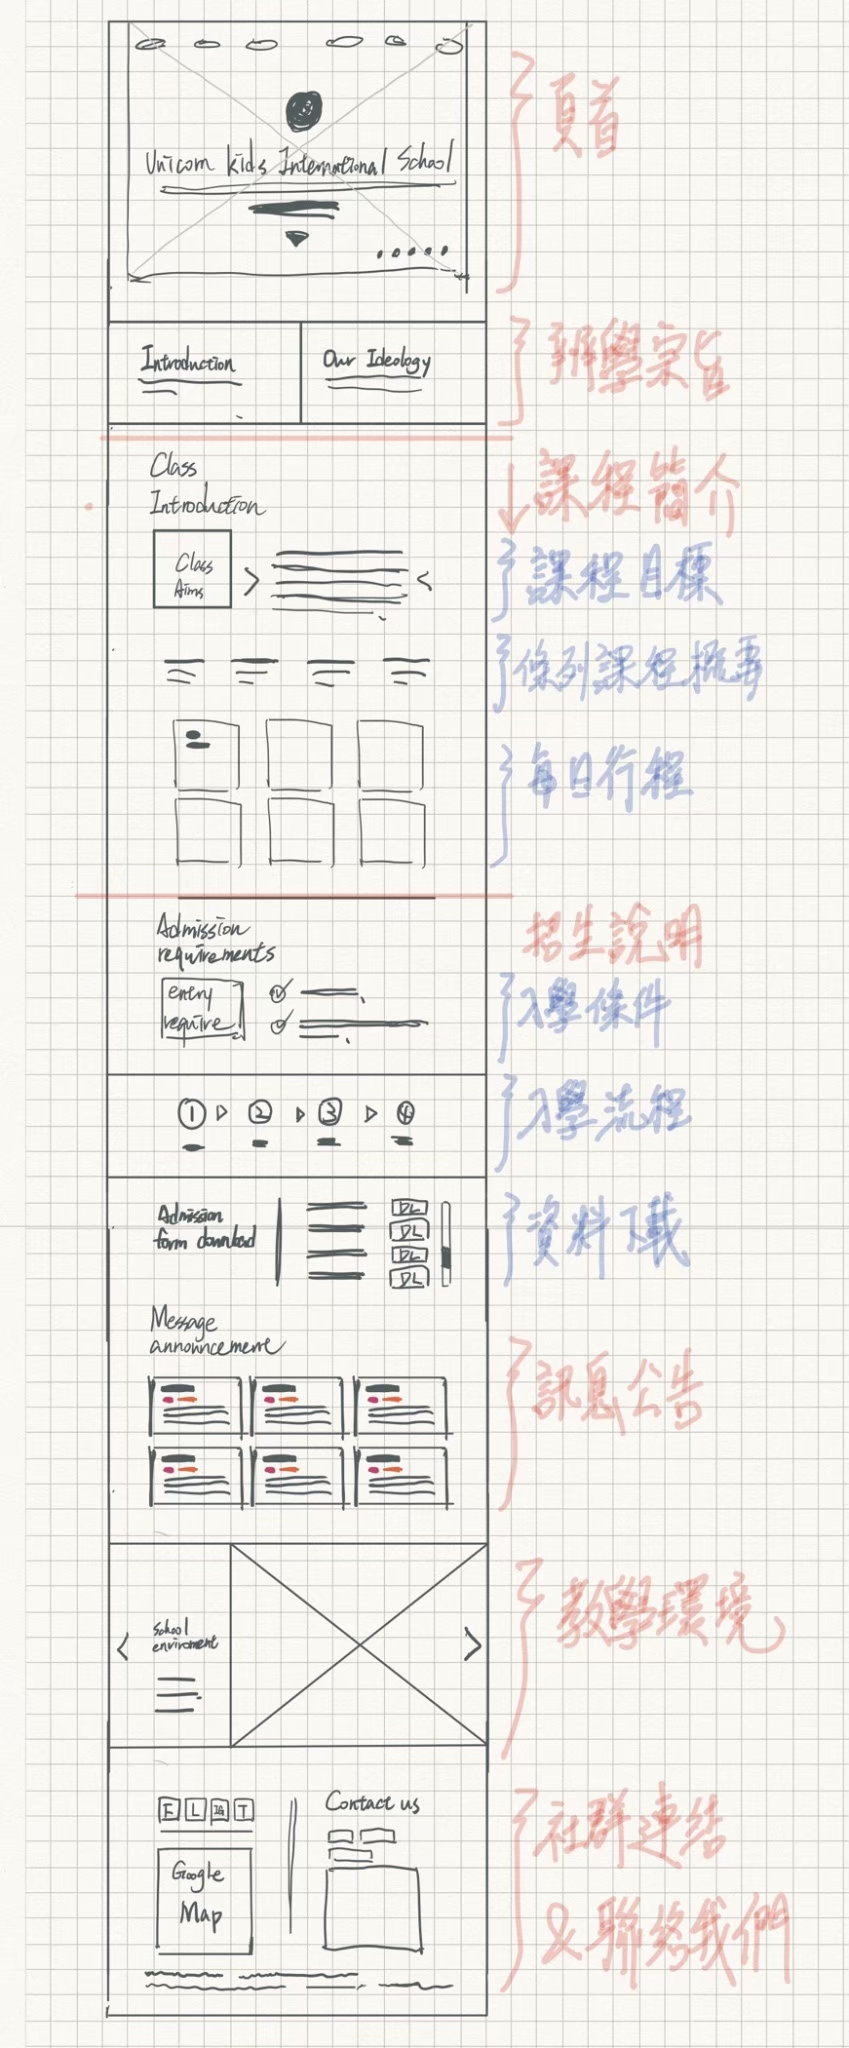 頁首
Unicorn kids International School
Introduction
Our Ideology
辦學宗旨
Class
Introduction
課程簡介
Class
Aims
課程目標
條列課程概事
每日行程
招生說明
Admission
requirements
entry
require
入學條件
1 2 3 4
入學流程
Admission
form download
DL
DL
DL
DL
資料下載
Message
announcement
訊息公告
教學環境
School
enviroment
F L IG T
Contact us
社群連結
Google
Map
&聯絡我們